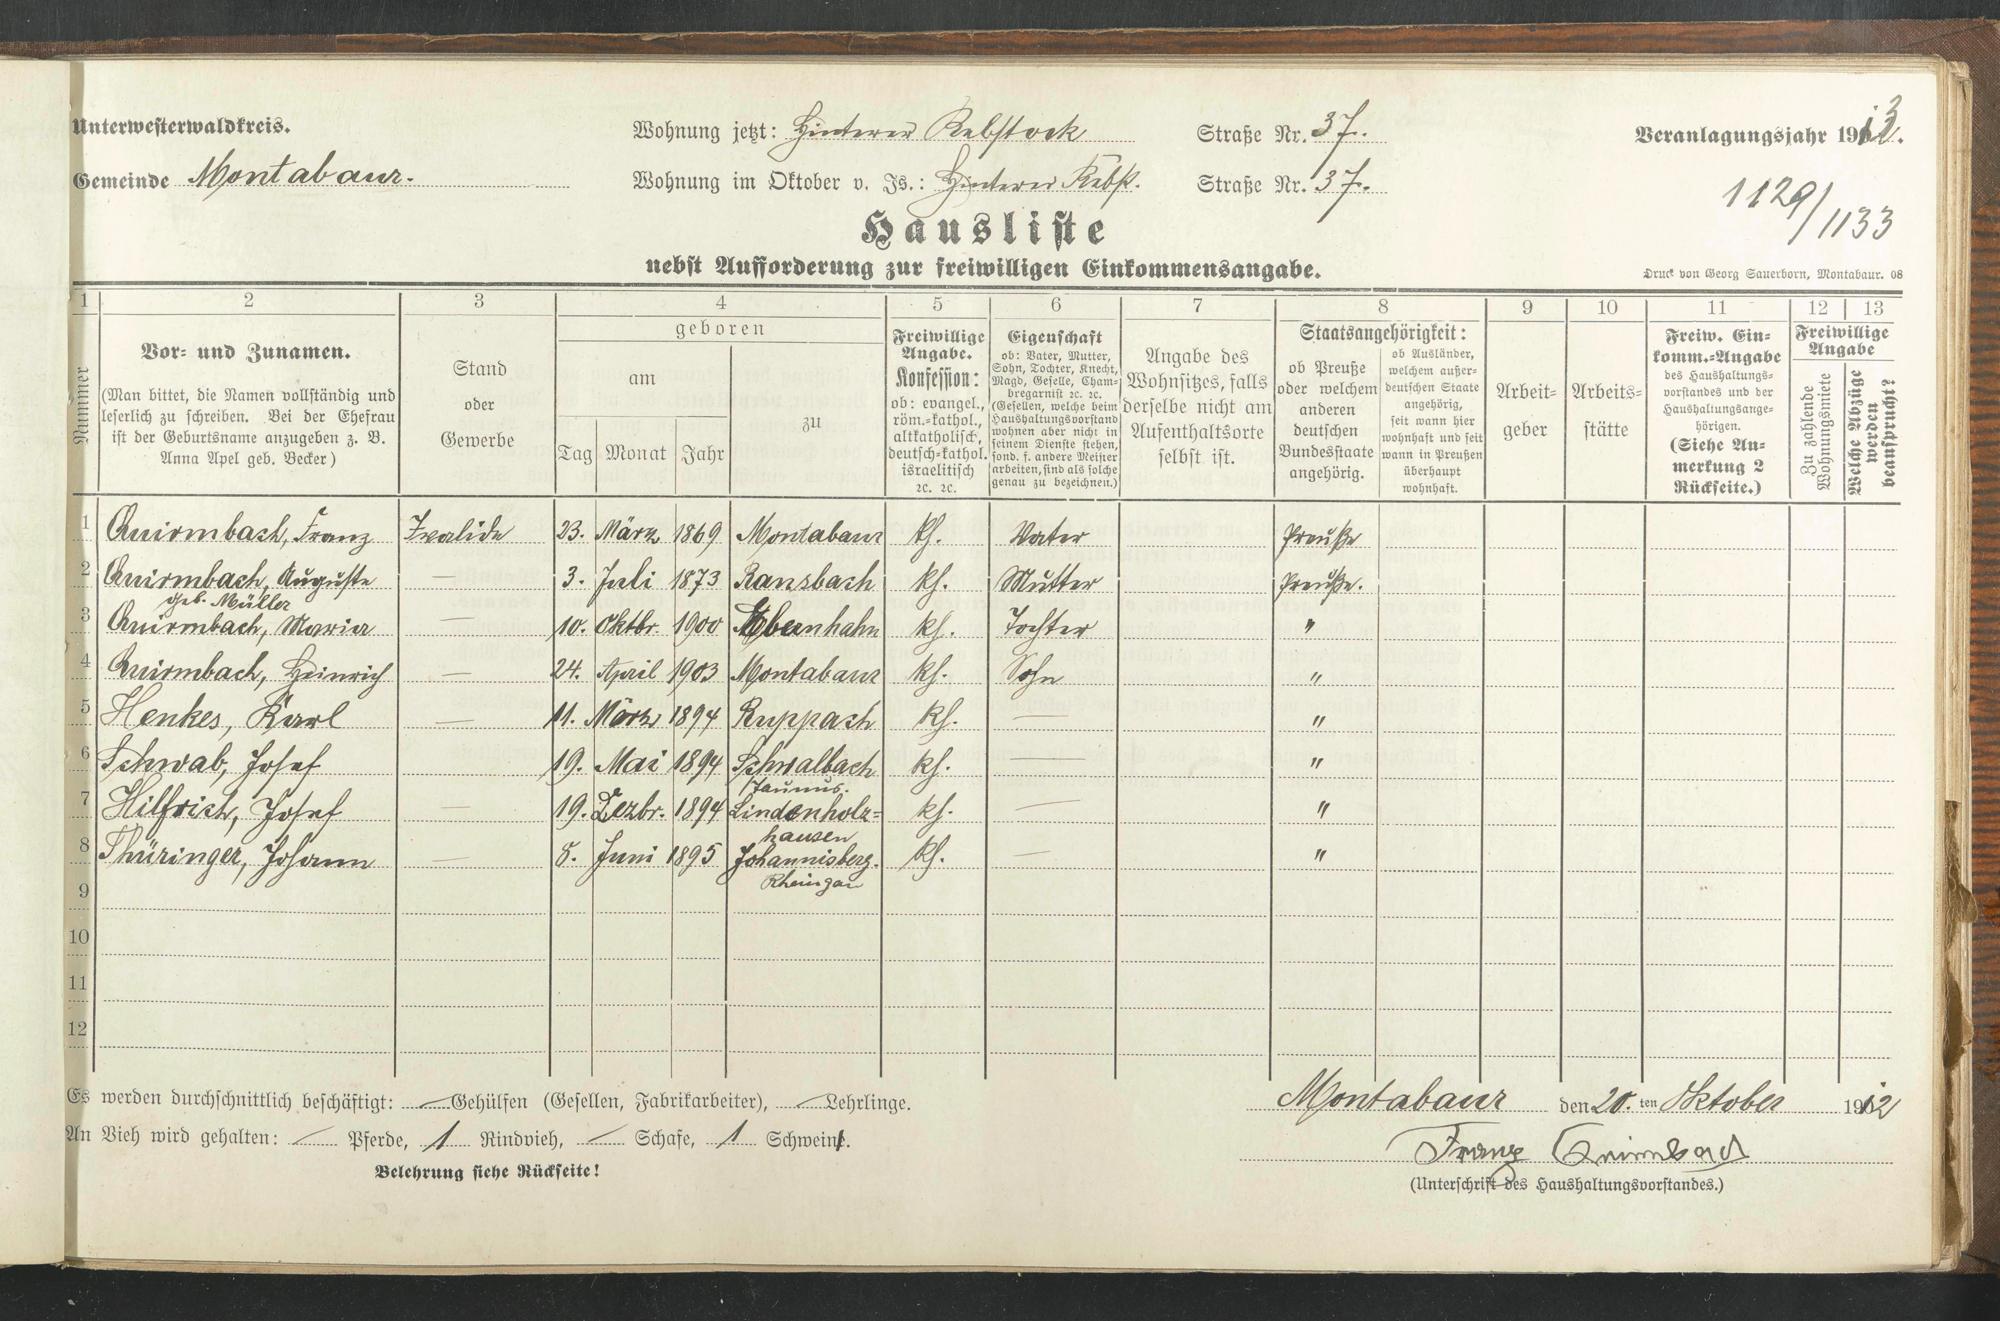 Unterwesterwaldkreis.
Gemeinde Montabaur.
Wohnung jetzt: Hinterer Rebstock Straße Nr. 37.
Wohnung im Oktober v. Js.: Hinterer Rebst. Straße Nr. 37.
Veranlagungsjahr 1913.
1129/1133
Hausliste
nebst Aufforderung zur freiwilligen Einkommensangabe.
Druck von Georg Sauerborn, Montabaur. 08
1 2 3 4 5 6 7 8 9 10 11 12 13
Nummer
Vor- und Zunamen.
(Man bittet, die Namen vollständig und
leserlich zu schreiben. Bei der Ehefrau
ist der Geburtsname anzugeben z. B.
Anna Apel geb. Becker)
Stand
oder
Gewerbe
geboren
am
Tag Monat Jahr
zu
Freiwillige
Angabe.
Konfession:
ob: evangel.,
röm.-kathol.,
altkatholisch,
deutsch-kathol.
israelitisch
2c. 2c.
Eigenschaft
ob: Vater, Mutter,
Sohn, Tochter, Knecht,
Magd, Geselle, Cham-
bregarnist 2c. 2c.
(Gesellen, welche beim
Haushaltungsvorstand
wohnen aber nicht in
seinem Dienste stehen,
sond. f. andere Meister
arbeiten, sind als solche
genau zu bezeichnen.)
Angabe des
Wohnsitzes, falls
derselbe nicht am
Aufenthaltsorte
selbst ist.
Staatsangehörigkeit:
ob Preuße
oder welchem
anderen
deutschen
Bundesstaate
angehörig.
ob Ausländer,
welchem außer-
deutschen Staate
angehörig,
seit wann hier
wohnhaft und seit
wann in Preußen
überhaupt
wohnhaft.
Arbeit-
geber
Arbeits-
stätte
Freiw. Ein-
komm.-Angabe
des Haushaltungs-
vorstandes und der
Haushaltungsange-
hörigen.
(Siehe An-
merkung 2
Rückseite.)
Freiwillige
Angabe
Zu zahlende
Wohnungsmiete
Welche Abzüge
werden
beansprucht?
1 Quirmbach, Franz Ivalide 23. März 1869 Montabaur kh. Vater Preuße
2 Quirmbach, Auguste — 3. Juli 1873 Ransbach kh. Mutter Preuße.
geb. Müller
3 Quirmbach, Maria — 10. Oktbr. 1900 Ebernhahn kh. Tochter "
4 Quirmbach, Heinrich — 24. April 1903 Montabaur kh. Sohn "
5 Henkes, Karl — 11. März 1894 Ruppach kh. — "
6 Schwab, Josef 19. Mai 1894 Schwalbach kh. — "
Taunus.
7 Hilfrich, Josef — 19. Dezbr. 1894 Lindenholz= kh. — "
hausen
8 Thüringer, Johann — 5. Juni 1895 Johannisberg. kh. — "
Rheingau
9
10
11
12
Es werden durchschnittlich beschäftigt: — Gehülfen (Gesellen, Fabrikarbeiter), — Lehrlinge.
An Vieh wird gehalten: — Pferde, 1 Rindvieh, — Schafe, 1 Schwein.
Belehrung siehe Rückseite!
Montabaur den 20. ten Oktober 1912
Franz Quirmbach
(Unterschrift des Haushaltungsvorstandes.)